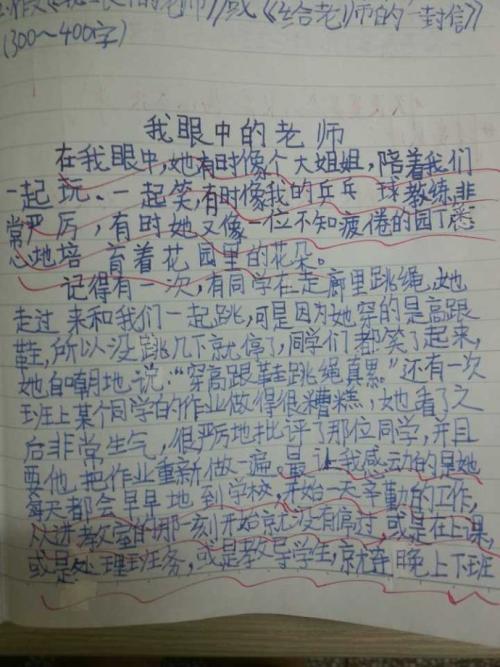 《我眼中的老师》或《给老师的一封信》
(300～400字)
我眼中的老师
在我眼中,她有时像个大姐姐,陪着我们
一起玩、一起笑,有时像我的乒乓球教练非
常严厉,有时她又像一位不知疲倦的园丁悉
心地培育着花园里的花朵。
记得有一次,有同学在走廊里跳绳,她
走过来和我们一起跳,可是因为她穿的是高跟
鞋,所以没跳几下就停了,同学们都笑了起来,
她自嘲地说:“穿高跟鞋跳绳真累。”还有一次
班上某个同学的作业做得很糟糕,她看了之
后非常生气,很严厉地批评了那位同学,并且
要他把作业重新做一遍。最让我感动的是她
每天都会早早地到学校,开始一天辛勤的工作,
从进教室的那一刻开始就没有停过,或是在上课,
或是处理班务,或是教导学生,就连晚上下班